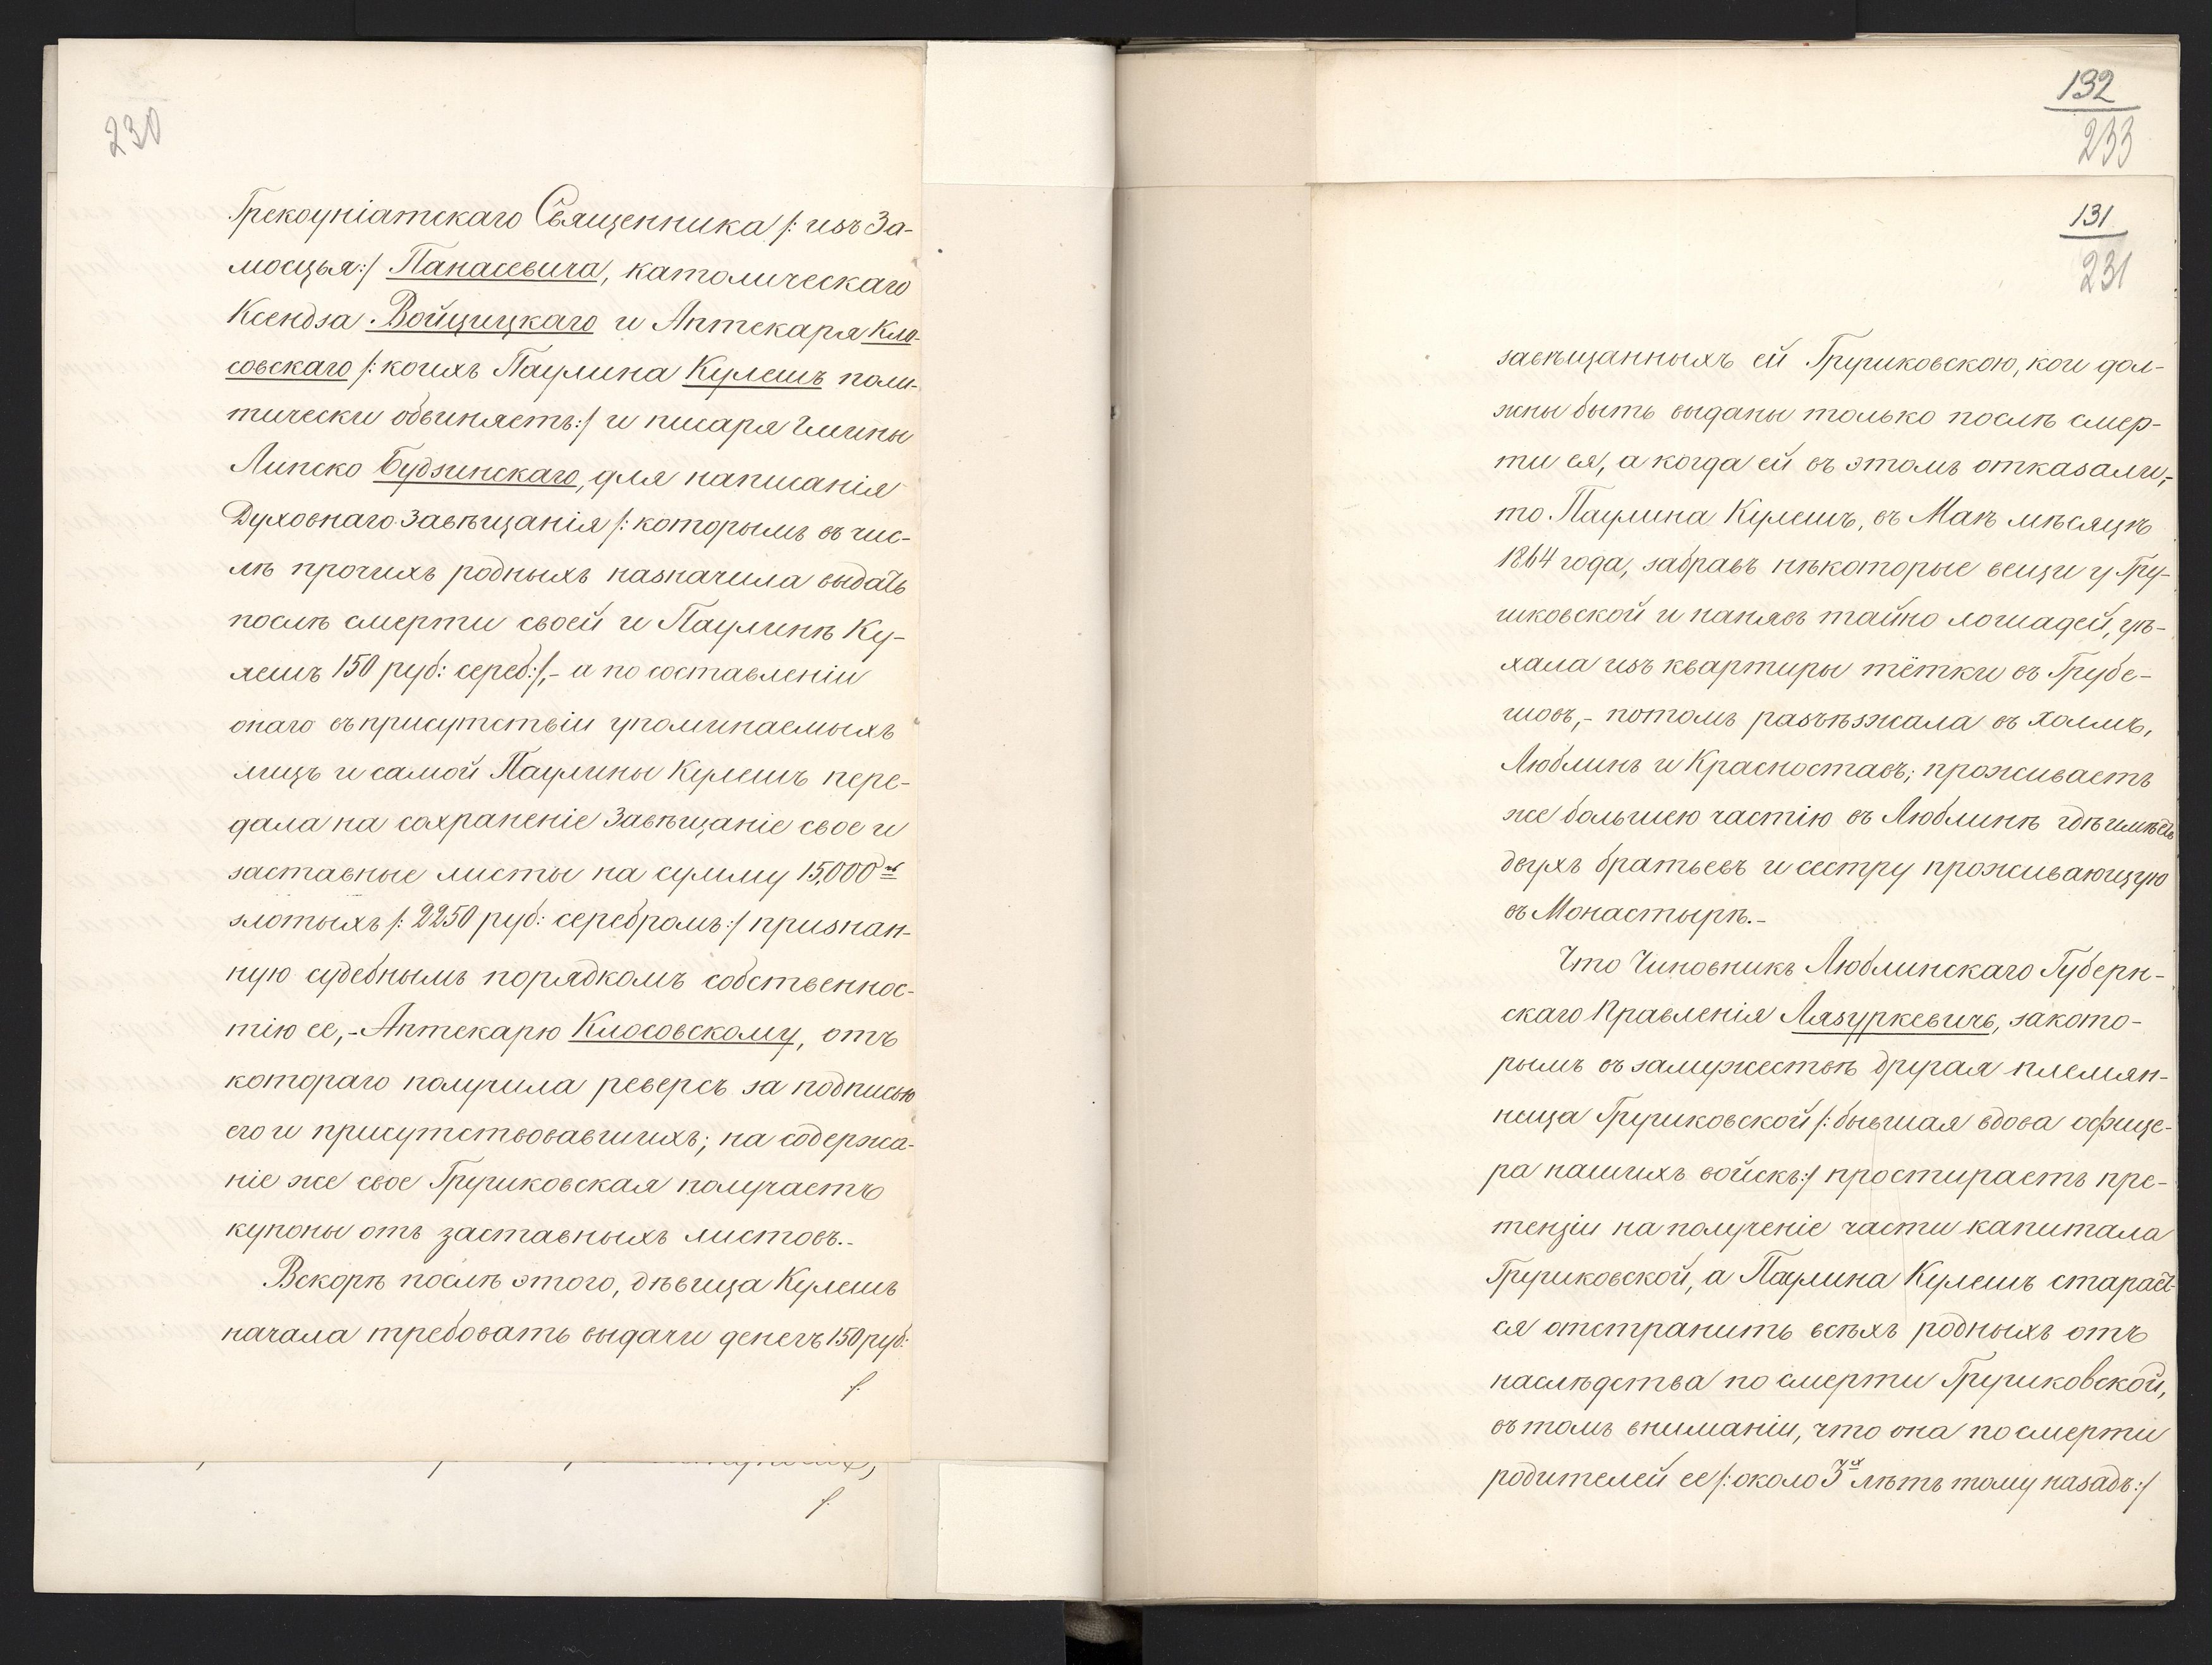 230
Грекоуніатскаго Священника /: изъ За-
мосцья:/ Панасевича, католическаго
Ксендза Войцицкаго и Аптекаря Кло-
совскаго /: коихъ Паулина Кулешъ поли-
тически обвиняетъ:/ и писаря Гмины
Липско Будзинскаго, для написанія
Духовнаго Завѣщанія /: которымъ въ чис-
лѣ прочихъ родныхъ назначила выдать
послѣ смерти своей и Паулинѣ Ку-
лешъ 150 руб: сереб:/,- а по составленіи
онаго въ присутствіи упоминаемыхъ
лицъ и самой Паулины Кулешъ пере-
дала на сохраненіе Завѣщаніе свое и
заставные листы на сумму 15,000
злотыхъ /: 2250 руб: серебромъ:/ признан-
ную судебнымъ порядкомъ собственнос-
тію ее,- Аптекарю Клосовскому, отъ
котораго получила реверсъ за подписью
его и присутствовавшихъ; на содержа-
ніе же свое Грушковская получаетъ
купоны отъ заставныхъ листовъ.-
Вскорѣ послѣ этого, дѣвица Кулешъ
начала требовать выдачи денегъ 150 руб:
/.
/.
132
233
131
231
завѣщанныхъ ей Грушковскою, кои дол-
жны быть выданы только послѣ смер-
ти ея, а когда ей въ этомъ отказали,-
то Паулина Кулешъ, въ Маѣ мѣсяцѣ
1864 года, забравъ нѣкоторые вещи у Гру-
шковской и нанявъ тайно лошадей, уѣ-
хала изъ квартиры тётки въ Грубе-
шовъ,- потомъ разъѣзжала въ Холмъ,
Люблинъ и Красноставъ; проживаетъ
же большею частію въ Люблинѣ гдѣ имѣетъ
двухъ братьевъ и сестру проживающую
въ Монастырѣ.-
Что Чиновникъ Люблинскаго Губерн-
скаго Правленія Лязуркевичъ, за кото-
рымъ въ замужествѣ другая племян-
ница Грушковской /: бывшая вдова офице-
ра нашихъ войскъ:/ простираетъ пре-
тензіи на полученіе части капитала
Грушковской, а Паулина Кулешъ старает-
ся отстранить всѣхъ родныхъ отъ
наслѣдства по смерти Грушковской,
въ томъ вниманіи, что она по смерти
родителей ее /: около 3х лѣтъ тому назадъ:/